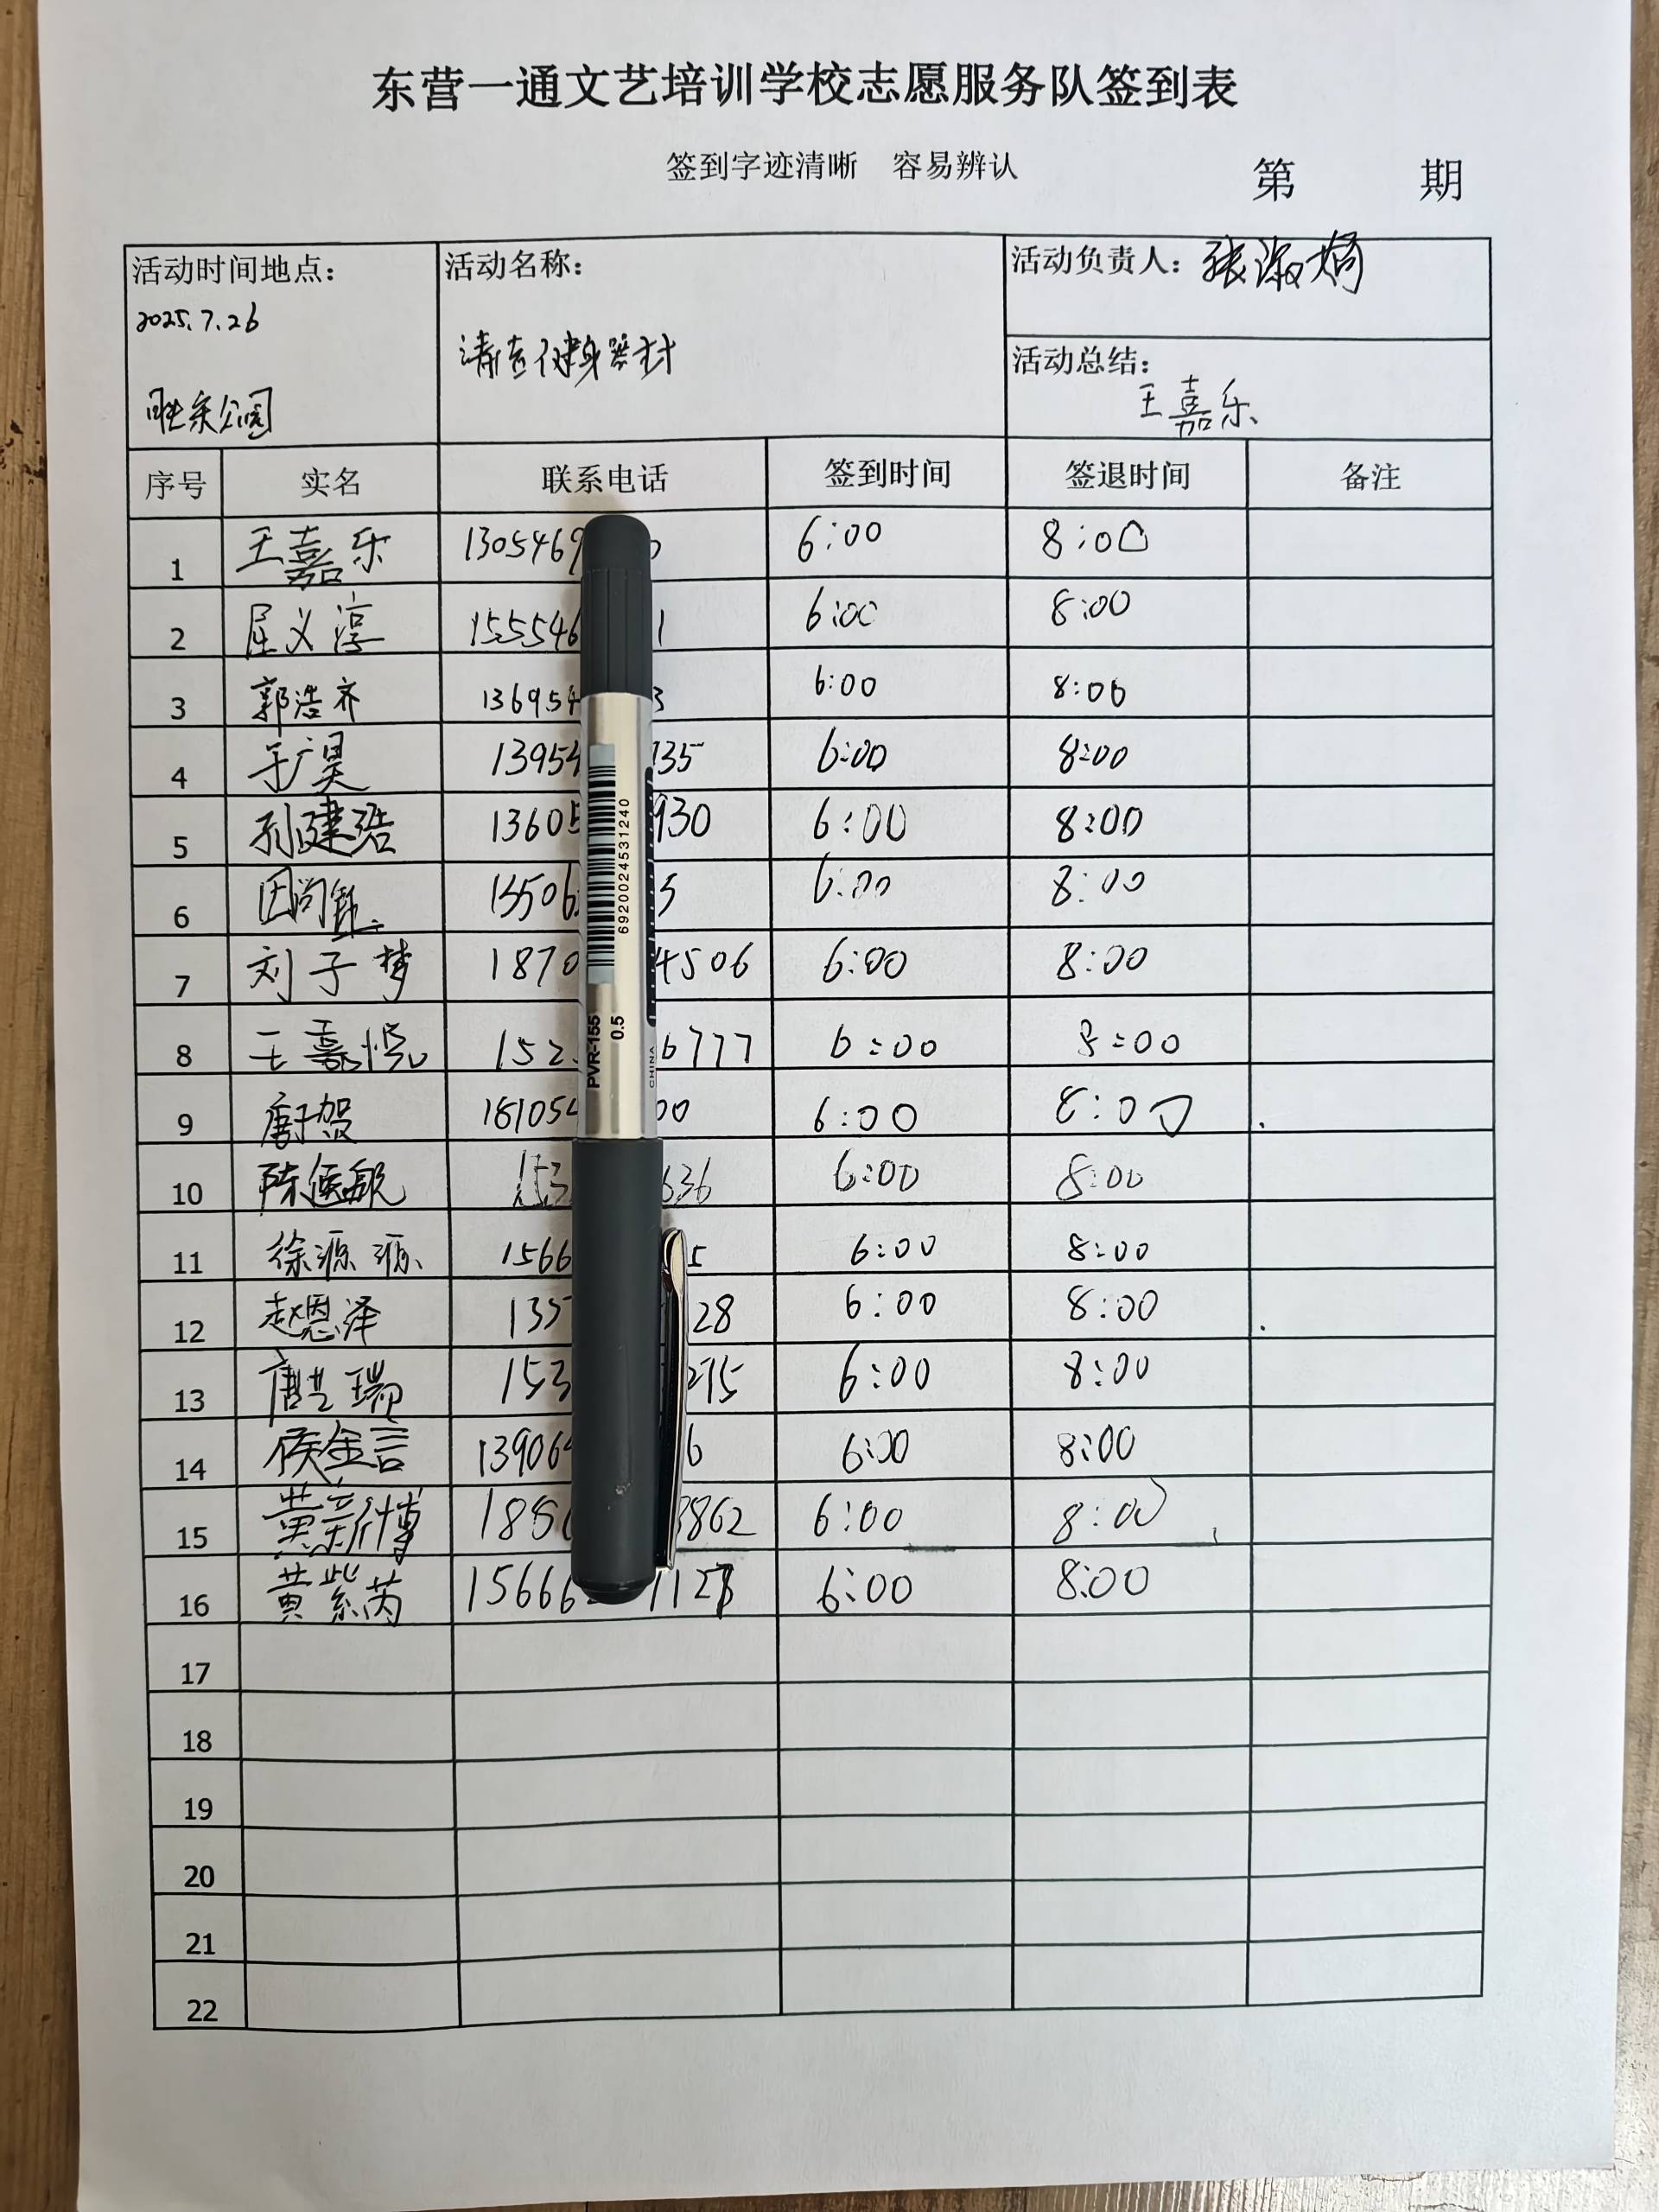 东营一通文艺培训学校志愿服务队签到表
签到字迹清晰 容易辨认 第 期
活动时间地点： 活动名称： 活动负责人：张淑娟
2025.7.26
清洁健身器材
活动总结：
王嘉乐
公园
序号 实名 联系电话 签到时间 签退时间 备注
1 王嘉乐 1305469 0 6:00 8:00
2 屈义淳 155546 1 6:00 8:00
3 郭浩齐 136954 3 6:00 8:00
4 于广昊 13954 135 6:00 8:00
5 孙建浩 13605 930 6:00 8:00
6 13506 5 6:00 8:00
7 刘子梦 1870 4506 6:00 8:00
8 王嘉悦 152 6777 6:00 8:00
9 181054 00 6:00 8:00
10 陈 153 636 6:00 8:00
11 徐源源 1566 5 6:00 8:00
12 赵恩泽 135 28 6:00 8:00
13 唐艺瑞 153 275 6:00 8:00
14 侯金言 13906 6 6:00 8:00
15 黄新博 1856 8862 6:00 8:00
16 黄紫芮 15666 1128 6:00 8:00
17
18
19
20
21
22
6920024531240
PVR-155
0.5
CHINA